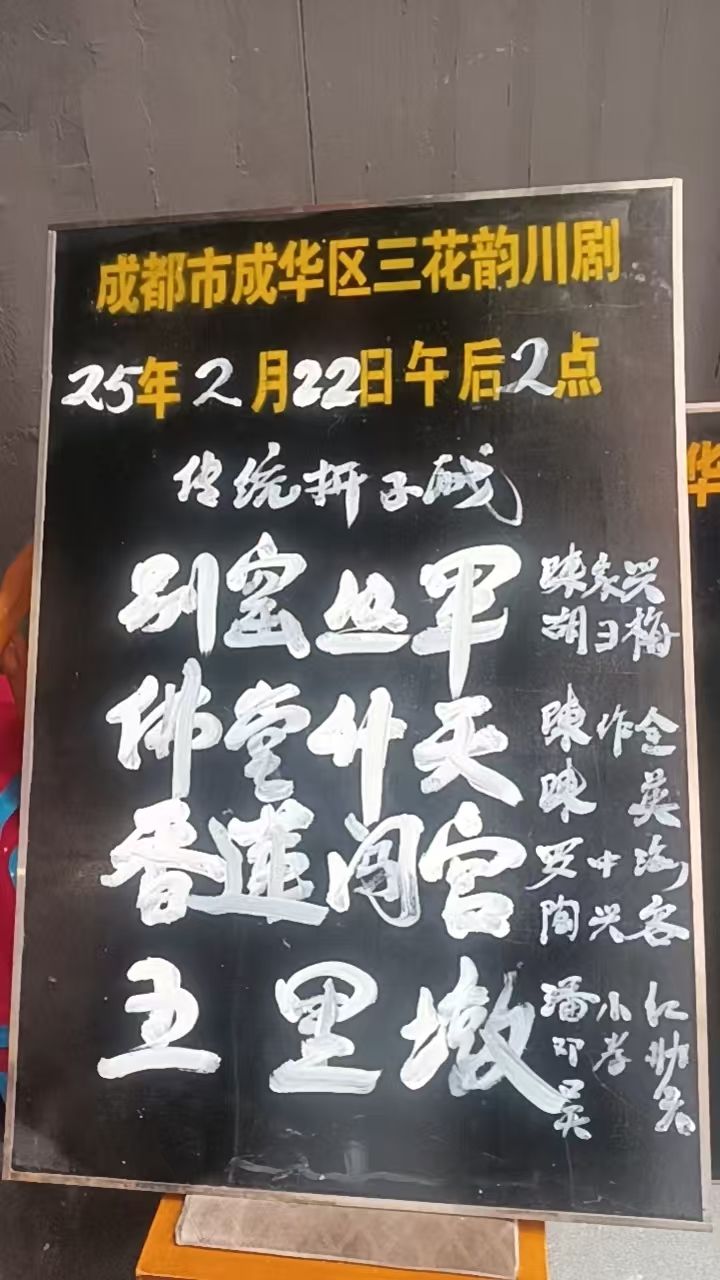 成都市成华区三花韵川剧
25年2月22日午后2点
传统折子戏
别窑从军 陳家兴
胡曰梅
佛堂升天 陳作全
陳英
香莲闯宫 罗中海
陶兴客
五里墩 潘小仁
邓学勋
吴
华